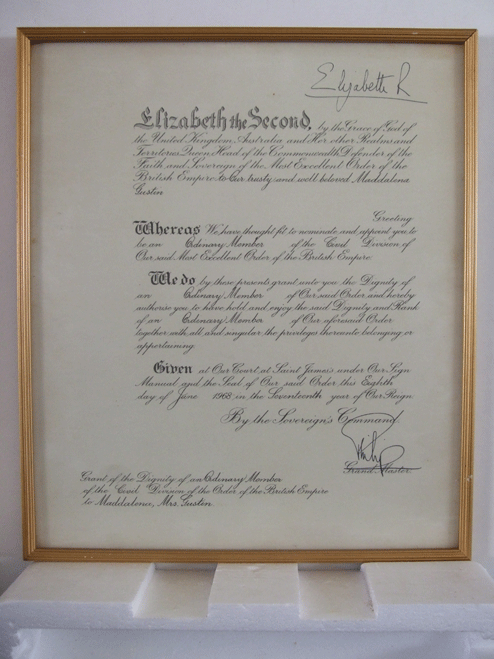 Elizabeth R
Elizabeth the Second, by the Grace of God of
the United Kingdom, Australia and Her other Realms and
Territories Queen, Head of the Commonwealth, Defender of the
Faith and Sovereign of the Most Excellent Order of the
British Empire to Our trusty and well beloved Maddalena
Gustin
Greeting
Whereas We have thought fit to nominate and appoint you to
be an Ordinary Member of the Civil Division of
Our said Most Excellent Order of the British Empire
We do by these presents grant unto you the Dignity of
an Ordinary Member of Our said Order and hereby
authorise you to have hold and enjoy the said Dignity and Rank
of an Ordinary Member of Our aforesaid Order
together with all and singular the privileges thereunto belonging or
appertaining.
Given at Our Court at Saint James's under Our Sign
Manual and the Seal of Our said Order this Eighth
day of June 1968 in the Seventeenth year of Our Reign
By the Sovereign's Command.
Philip
Grand Master
Grant of the Dignity of an Ordinary Member
of the Civil Division of the Order of the British Empire
to Maddalena, Mrs. Gustin.